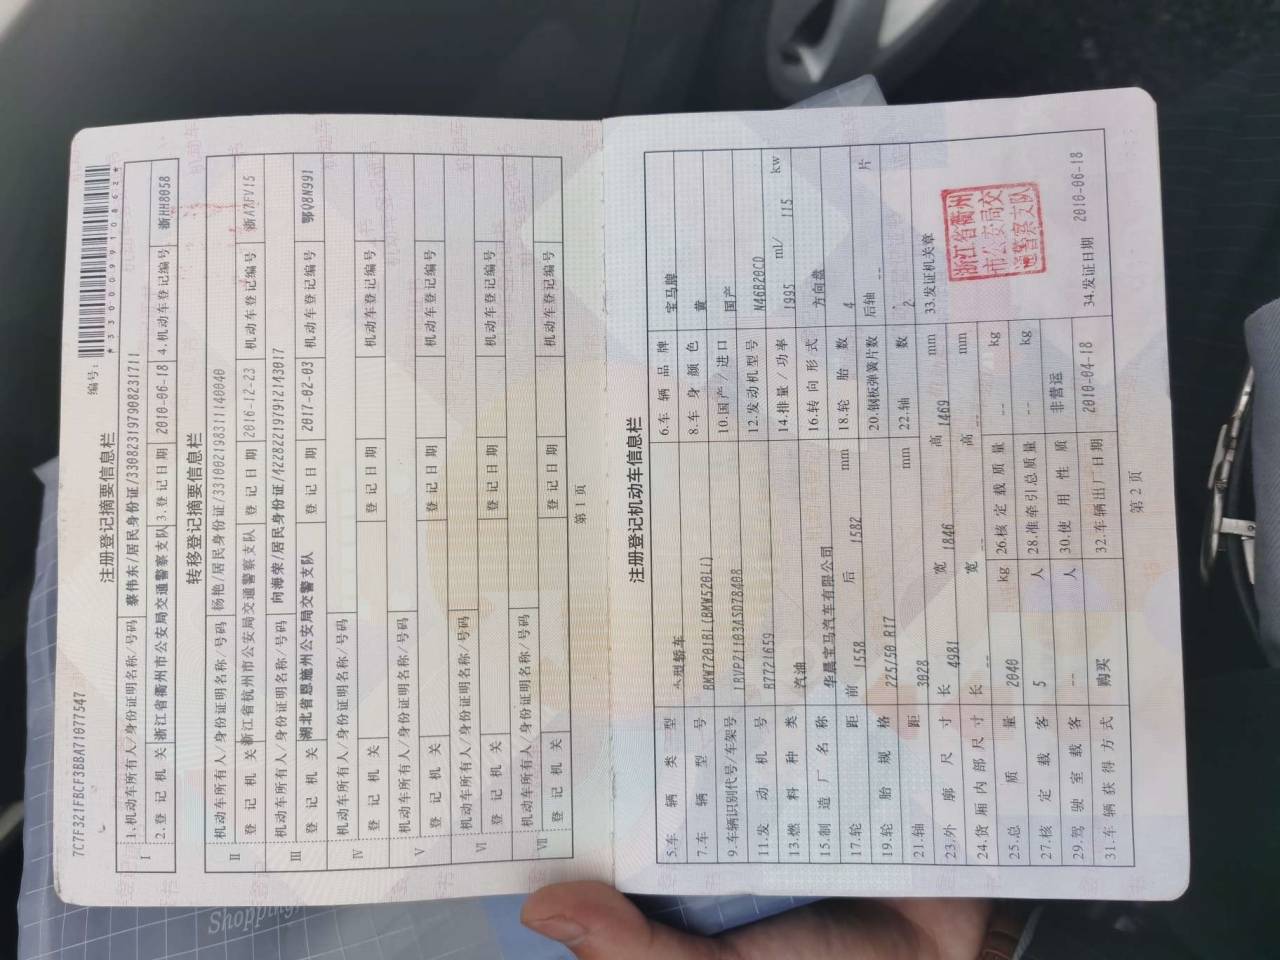 7C7F321FBCF3BBA71077547
编号:
*330009910862*
注册登记摘要信息栏
Ⅰ 1.机动车所有人/身份证明名称/号码 蔡伟东/居民身份证/330823197908231711
2.登记机关 浙江省衢州市公安局交通警察支队 3.登记日期 2010-06-18 4.机动车登记编号 浙HH8058
转移登记摘要信息栏
Ⅱ 机动车所有人/身份证明名称/号码 杨艳/居民身份证/331002198311140040
登记机关 浙江省杭州市公安局交通警察支队 登记日期 2016-12-23 机动车登记编号 浙A7FV15
Ⅲ 机动车所有人/身份证明名称/号码 向海荣/居民身份证/422822197912143017
登记机关 湖北省恩施州公安局交警支队 登记日期 2017-02-03 机动车登记编号 鄂Q8N991
Ⅳ 机动车所有人/身份证明名称/号码
登记机关 登记日期 机动车登记编号
Ⅴ 机动车所有人/身份证明名称/号码
登记机关 登记日期 机动车登记编号
Ⅵ 机动车所有人/身份证明名称/号码
登记机关 登记日期 机动车登记编号
Ⅶ 机动车所有人/身份证明名称/号码
登记机关 登记日期 机动车登记编号
第 1 页
注册登记机动车信息栏
5.车辆类型 大型轿车 6.车辆品牌 宝马牌
7.车辆型号 BMW7201BL(BMW520LI) 8.车身颜色 黄
9.车辆识别代号/车架号 LBVPZ1103ASD78408 10.国产/进口 国产
11.发动机号 B7721659 12.发动机型号 N46B20CD
13.燃料种类 汽油 14.排量/功率 1995 ml/ 115 kw
15.制造厂名称 华晨宝马汽车有限公司 16.转向形式 方向盘
17.轮距 前 1558 后 1582 mm 18.轮胎数 4
19.轮胎规格 225/50 R17 20.钢板弹簧片数 后轴 -- 片
21.轴距 3028 mm 22.轴数 2
23.外廓尺寸 长 4981 宽 1846 高 1469 mm 33.发证机关章
24.货厢内部尺寸 长 -- 宽 -- 高 -- mm
25.总质量 2040 kg 26.核定载质量 -- kg
27.核定载客 5 人 28.准牵引总质量 -- kg
29.驾驶室载客 -- 人 30.使用性质 非营运
31.车辆获得方式 购买 32.车辆出厂日期 2010-04-18 34.发证日期 2010-06-18
浙江省衢州
市公安局交
通警察支队
第 2 页
Shopping